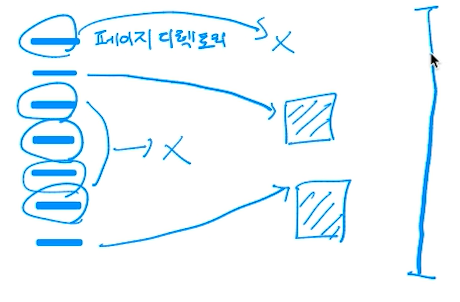 페이지 디렉토리
X
X